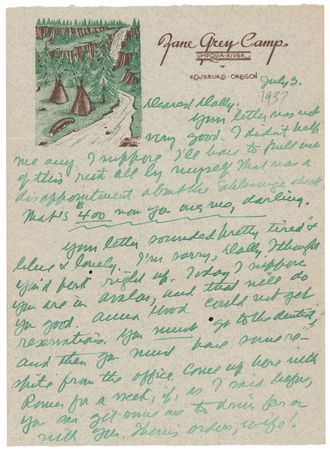 Zane Grey Camp
UMPQUA · RIVER
ROSEBURG · OREGON
July 3.
1937
Dearest Dolly:
Your letter was not
very good. I didn't help
me any. I suppose I'll have to pull out
of this rut all by myself. That was a
disappointment about the check
That's $400 now you owe me, darling.
Your letter sounded pretty tired &
blue & lonely. I'm sorry, Dolly. I thought
you'd perk right up. Today I suppose
you are in Avalon, and that will do
you good. Anna Wood could not get
reservations. You must go to the dentist,
and then you must have some re-
spite from the office. Come up here with
Romer for a week, if, as I said before,
you can get someone to drive for or
with you. Them's orders, wife!